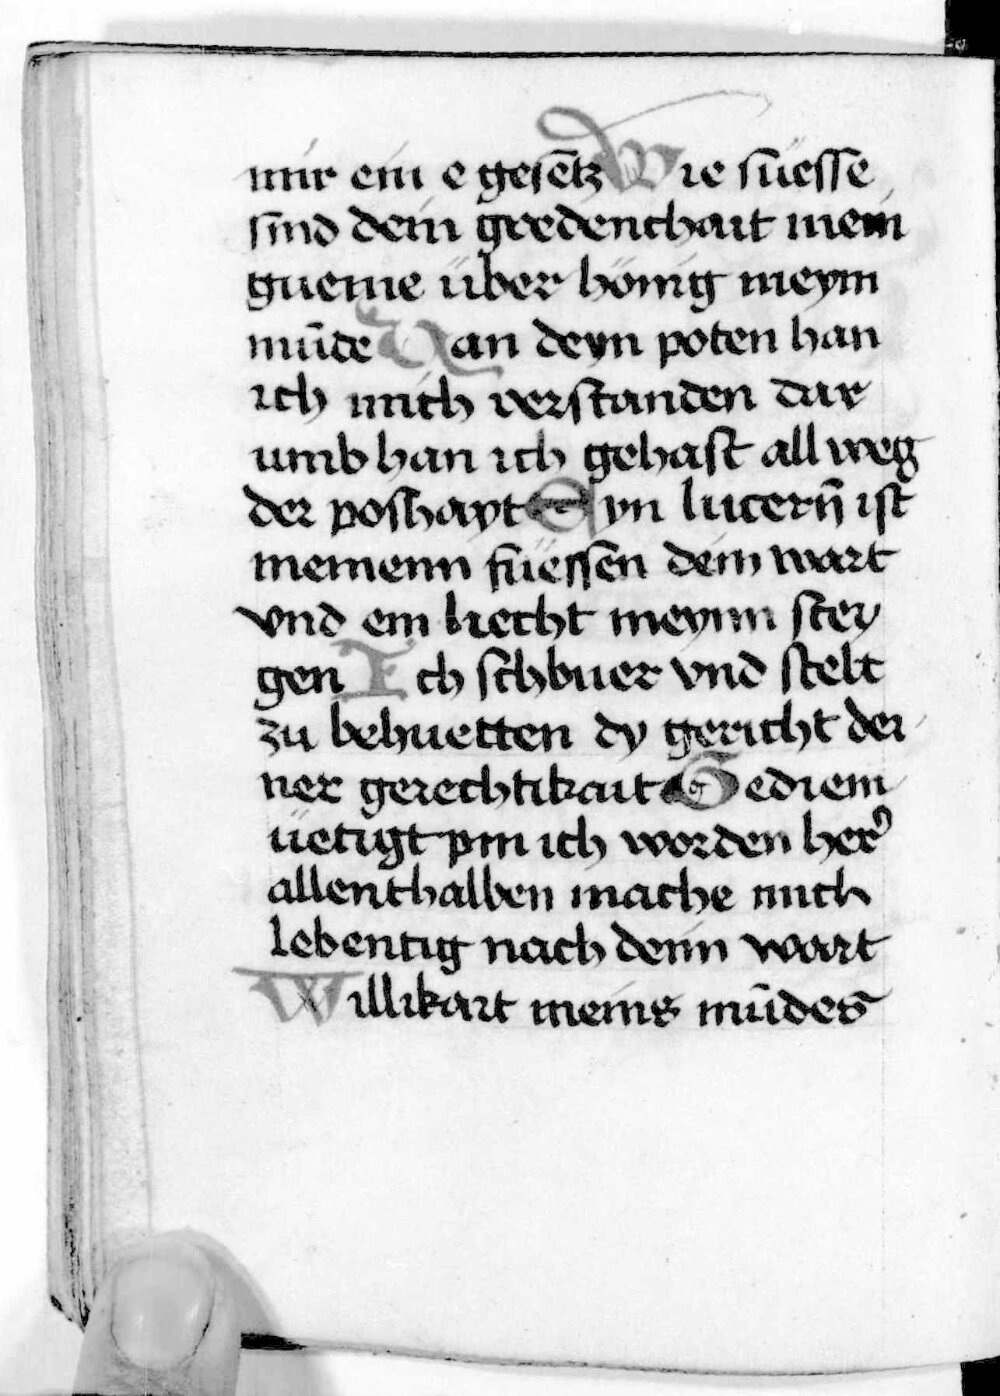 mir ein e gesēcz Wie süesse
sind dein geredenchait mein
gueme über hönig meym
mūde Wan deyn poten han
ich mich verstanden dar
umb han ich gehast all weg
der poshayt Eyn lucerñ ist
meinenn füessen dein wart
vnd ein liecht meynn stey
gen Ich schbuer vnd stelt
zu behuetten dy gericht dei
ner gerechtikait Gediem
üetigt pin ich worden her
allenthalben mache mich
lebentig nach deim wart
Willikait meins mūdes